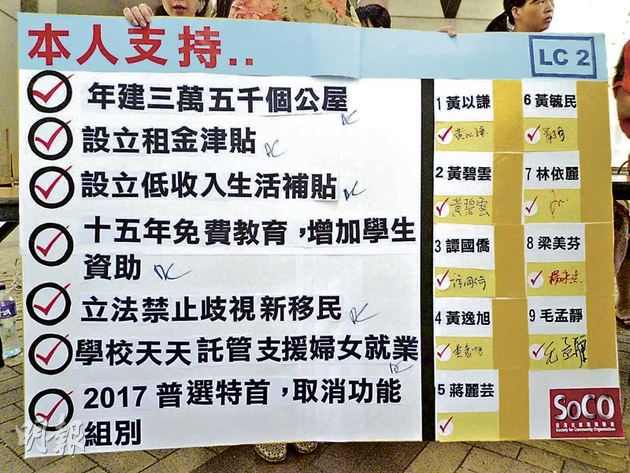 本人支持..
LC 2
年建三萬五千個公屋
設立租金津貼
設立低收入生活補貼
十五年免費教育，增加學生
資助
立法禁止歧視新移民
學校天天託管支援婦女就業
2017 普選特首，取消功能
組別
1 黃以謙
黃以謙
2 黃碧雲
黃碧雲
3 譚國僑
4 黃逸旭
5 蔣麗芸
6 黃毓民
7 林依麗
8 梁美芬
9 毛孟靜
毛孟靜
SoCO
Society for Community Organization
明報